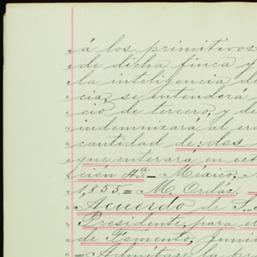 á los primitivos
de dicha finca y
la inteligencia de
cia, se entenderá
cio de tercero, y de
indemnizará al era
cantidad de dos
que enterará en est
ción 4ª – México,
1,855 = M. Ordaz.
Acuerdo de S.
Presidente, para el
de Fomento, Juni
= Admítase la pr